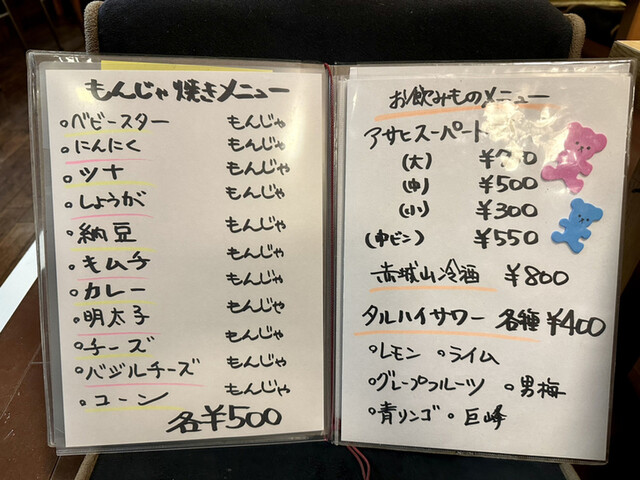 もんじゃ焼きメニュー
ベビースター もんじゃ
にんにく もんじゃ
ツナ もんじゃ
しょうが もんじゃ
納豆 もんじゃ
キムチ もんじゃ
カレー もんじゃ
明太子 もんじゃ
チーズ もんじゃ
バジルチーズ もんじゃ
コーン もんじゃ
各¥500
お飲みものメニュー
アサヒスーパード
(大)
(中) ¥500
(小) ¥300
(中ビン) ¥550
赤城山冷酒 ¥800
タルハイサワー 各種 ¥400
レモン ライム
グレープフルーツ 男梅
青リンゴ 巨峰